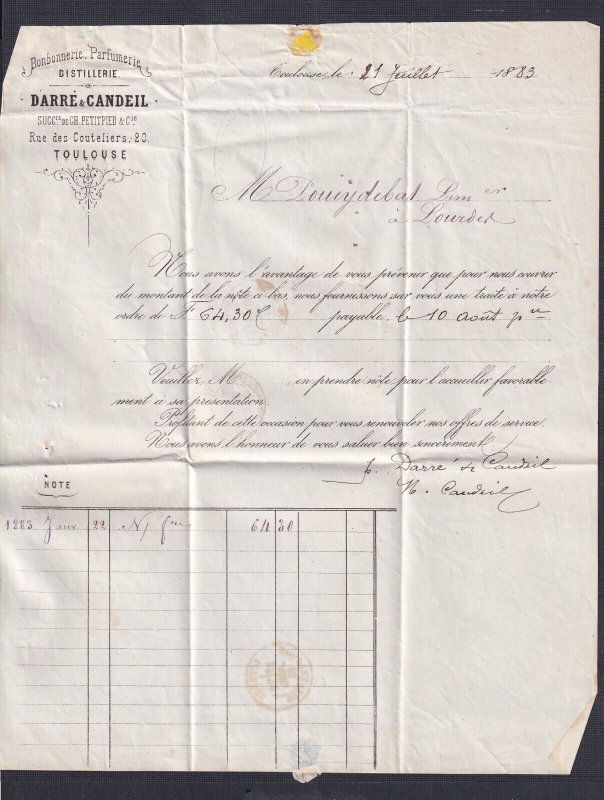 Bonbonnerie, Parfumerie
DISTILLERIE
DARRÉ & CANDEIL
SUCCRS DE CH. PETITPIED & Cie
Rue des Couteliers, 20.
TOULOUSE
Toulouse, le 21 Juillet 1883
M Doueydebat Lim er
à Lourdes
Nous avons l'avantage de vous prévenir que pour nous couvrir
du montant de la note a bas, nous fournissons sur vous une traite à notre
ordre de F 64,30 payable le 10 Août pn
Veuillez, M en prendre note pour l'accueillir favorable
ment à sa présentation.
Profitant de cette occasion pour vous renouveler nos offres de service,
Nous avons l'honneur de vous saluer bien sincèrement.
p. Darré & Candeil
N. Candeil
NOTE
1883 Janv 22 N/ fre 64 30